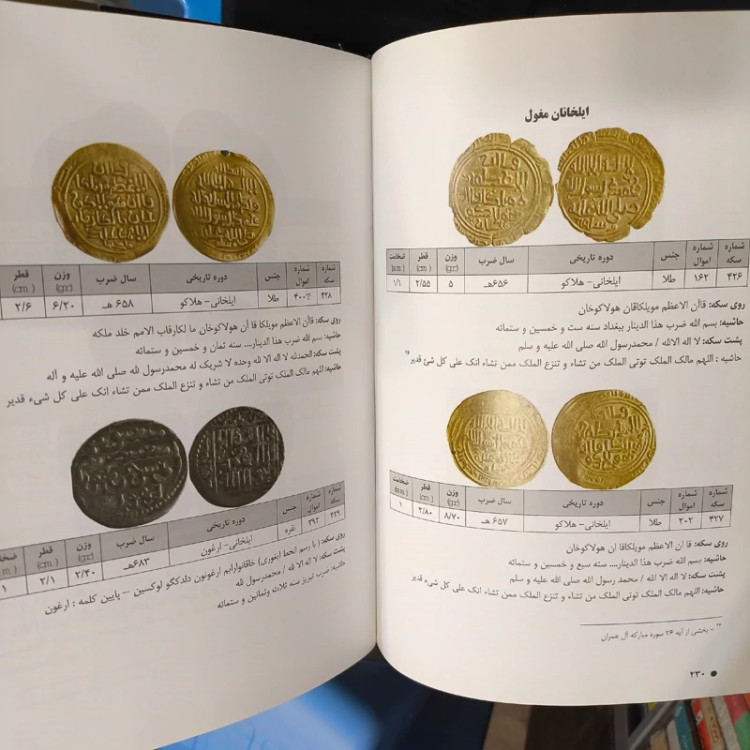 ایلخانان مغول
شماره سکه شماره اموال جنس دوره تاریخی سال ضرب وزن (gr) قطر (cm) ضخامت (mm)
۴۲۶ ۱۶۲ طلا ایلخانی- هلاکو ۶۵۶هـ ۵ ۲/۵۵ ۱/۱
روی سکه: قاآن الاعظم مویلکاقان هولاکوخان
حاشیه: بسم الله ضرب هذا الدینار ببغداد سنه ست و خمسین و ستمائه
پشت سکه: لا اله الالله / محمدرسول الله صلی الله علیه و سلم
حاشیه : اللهم مالک الملک توتی الملک من تشاء و تنزع الملک ممن تشاء انک علی کل شئ قدیر
شماره سکه شماره اموال جنس دوره تاریخی سال ضرب وزن (gr) قطر (cm) ضخامت (mm)
۴۲۷ ۲۰۲ طلا ایلخانی- هلاکو ۶۵۷ هـ ۸/۷۰ ۲/۸۰ ۱
روی سکه: قا ان الاعظم مویلکاقا ان هولاکوخان
حاشیه: بسم الله ضرب هذا الدینار... سنه سبع و خمسین و ستمائه
پشت سکه: لا اله الا الله / محمد رسول الله صلی الله علیه و سلم
حاشیه: اللهم مالک الملک توتی الملک من تشاء و تنزع الملک ممن تشاء انک علی کل شیء قدیر
- بخشی از آیه ۲۶ سوره مبارکه آل عمران
۲۳۰
شماره سکه شماره اموال جنس دوره تاریخی سال ضرب وزن (gr) قطر (cm)
۴۲۸ طلا ایلخانی- هلاکو ۶۵۸ هـ ۶/۲۰ ۲/۶
روی سکه: قاآن الاعظم مویلکا قا آن هولاکوخان ما لکارقاب الامم خلد ملکه
حاشیه: بسم الله ضرب هذا الدینار.... سنه ثمان و خمسین و ستمائه
پشت سکه: الحمدلله لا اله الا لله وحده لا شریک له محمدرسول لله صلی الله علیه و آله
حاشیه: اللهم مالک الملک توتی الملک من تشاء و تنزع الملک ممن تشاء انک علی کل شیء قدیر
شماره سکه شماره اموال جنس دوره تاریخی سال ضرب وزن (gr) قطر (cm) ضخامت
۴۲۹ ۳۹۲ نقره ایلخانی- ارغون ۶۸۳هـ ۲/۴۰ ۲/۱ ۱
روی سکه: ( با رسم الخط اینوری) خاقانوارایم ارغونون دلدکگو لوکسین – پایین کلمه : ارغون
پشت سکه: لا اله الا لله / محمدرسول لله
حاشیه: ضرب تبریز سنه ثلاث وثمانین و ستمائه